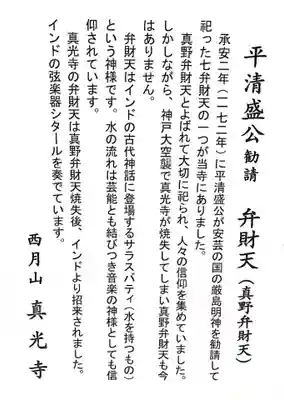 平清盛公勧請 弁財天（真野弁財天）
承安二年（一一七二年）に平清盛公が安芸の国の厳島明神を勧請して
祀った七弁財天の一つが当寺にありました。
真野弁財天とよばれて大切に祀られ、人々の信仰を集めていました。
しかしながら、神戸大空襲で真光寺が焼失してしまい真野弁財天も今
はありません。
弁財天はインドの古代神話に登場するサラスバティ（水を持つもの）
という神様です。水の流れは芸能とも結びつき音楽の神様としても信
仰されています。
真光寺の弁財天は真野弁財天焼失後、インドより招来されました。
インドの弦楽器シタールを奏でています。
西月山 真光寺